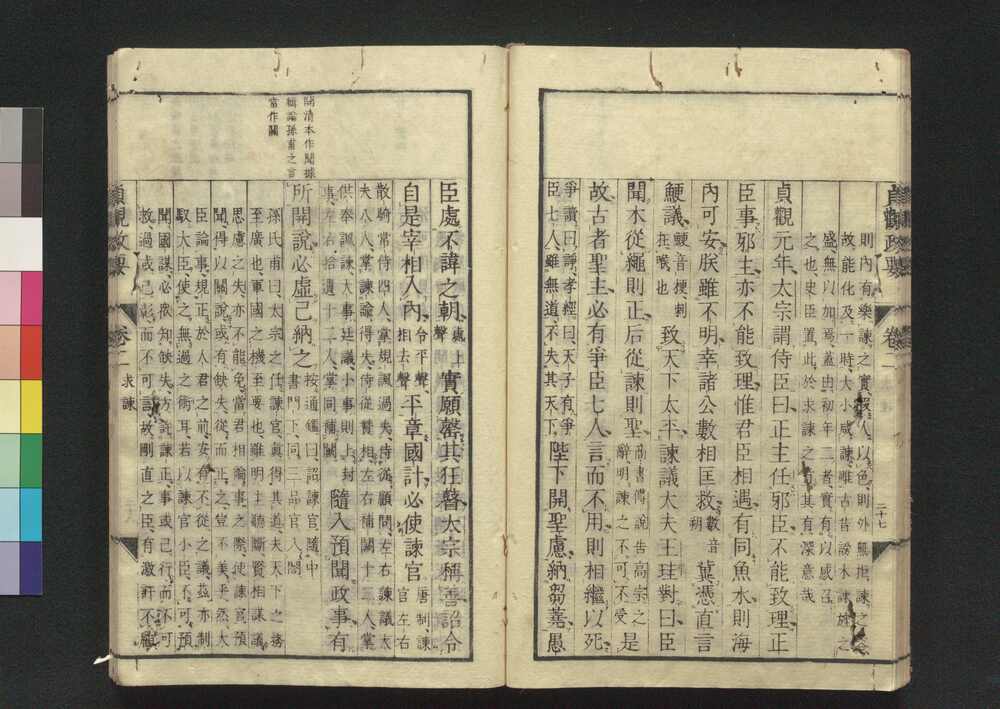 貞觀政要 卷二 二十七
則內有樂諫之實假人以色則外無拒諫之
故能化及一時大小咸諫雖古昔謗木諫旌之
盛無以加焉蓋由初年二者實有以感召
之也史臣置此於求諫之首其有深意哉
貞觀元年太宗謂侍臣曰正主任邪臣不能致理正
臣事邪主亦不能致理惟君臣相遇有同魚水則海
內可安朕雖不明幸諸公數相匡救數音朔冀憑直言
鯁議鯁音梗刺在喉也致天下太平諫議大夫王珪對曰臣
聞木從繩則正后從諫則聖尚書傅說告高宗之辭明諫之不可不受是
故古者聖主必有爭臣七人言而不用則相繼以死
爭讀曰諍孝經曰天子有爭臣七人雖無道不失其天下陛下開聖慮納芻蕘愚
臣處不諱之朝處上聲實願罄其狂瞽太宗稱善詔令
自是宰相入內令平聲相去聲平章國計必使諫官唐制諫官左右
散騎常侍四人掌規諷過失侍從顧問左右諫議大
夫八人掌諫諭得失侍從贊相左右補闕十二人掌
供奉諷諫大事廷議小事則上封
事左右拾遺十二人掌同補闕隨入預聞政事有
所開說必虛己納之按通鑑曰詔諫官隨中書門下同三品官入閤
孫氏甫曰太宗之任諫官眞得其道夫天下之務
至廣也軍國之機至要也雖明主聽斷賢相謀議
思慮之失亦不能免當君相論事之際使諫官預
聞得以關說或有缺失從而正之豈不美乎然大
臣論事規正於人君之前安有不從之議茲亦制
馭大臣使之無過之術耳若以諫官小臣不可預
聞國謀必衆知缺失方許諫正事或已行而不可
救過或已彰而不可言故剛直之臣有激訐不
開清本作聞據
輯論孫甫之言
當作關
貞觀政要 卷二 求諫